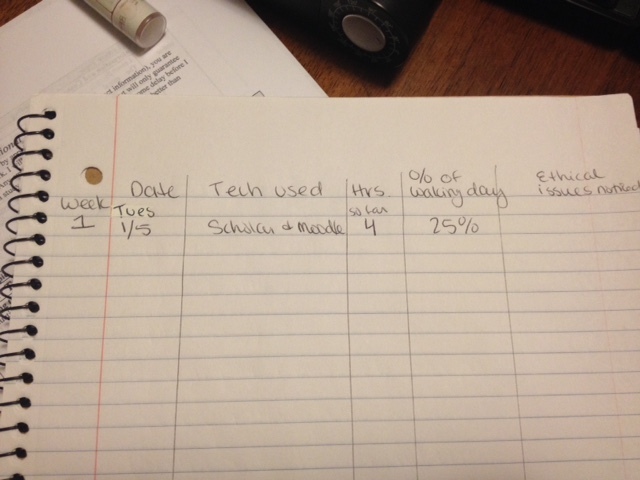 information), you are
will only guarantee
me delay before I
better than
Week Date Tech used Hrs so far % of waking day Ethical issues noticed
1 Tues 1/5 Scholar & Moodle 4 25%